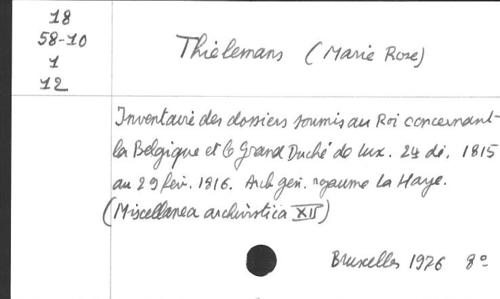 18
58-10
1
12
Thielemans (Marie Rose)
Inventaire des dossiers soumis au Roi concernant
la Belgique et le Grand Duché de Lux. 24 dé. 1815
au 29 fév. 1816. Arch gén. royaume La Haye.
(Miscellanea archivistica XII)
Bruxelles 1976 8º